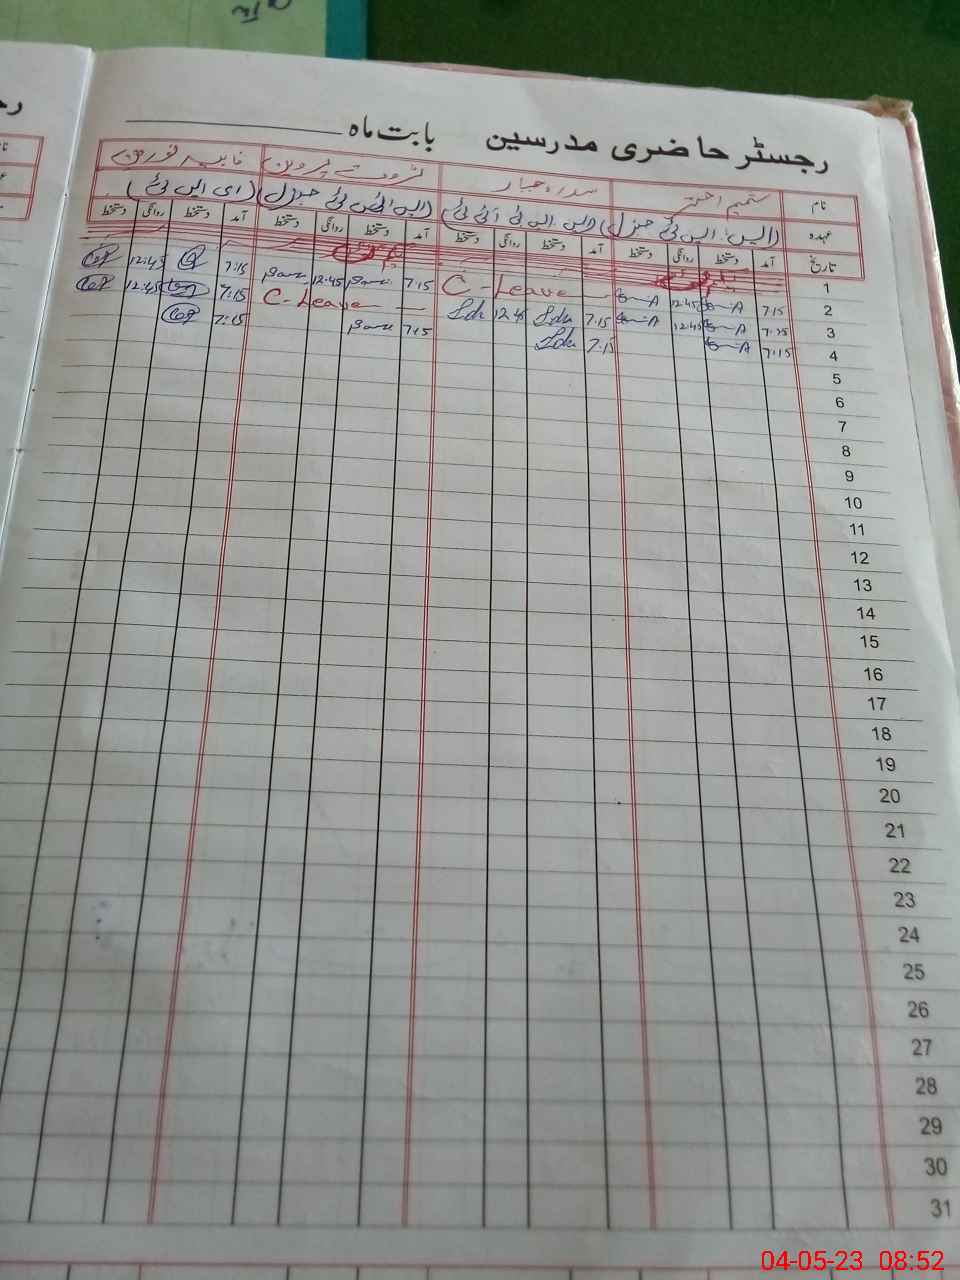 رجسٹر حاضری مدرسین بابت ماہ
نام شمیم اختر سدرہ جبار ثروت پروین
عہدہ (ایس ایس ٹی جنرل) (ایس ایس ٹی آئی ٹی) (ایس ایس ٹی جنرل) (ای ایس ٹی)
تاریخ آمد دستخط روانگی دستخط آمد دستخط روانگی دستخط آمد دستخط روانگی دستخط آمد دستخط روانگی دستخط
1
2 7:15 12:45 C-Leave 7:15 12:45 7:15 12:45
3 7:15 12:45 7:15 12:45 C-Leave 7:15 12:45
4 7:15 7:15 7:15 7:15
5
6
7
8
9
10
11
12
13
14
15
16
17
18
19
20
21
22
23
24
25
26
27
28
29
30
31
04-05-23 08:52